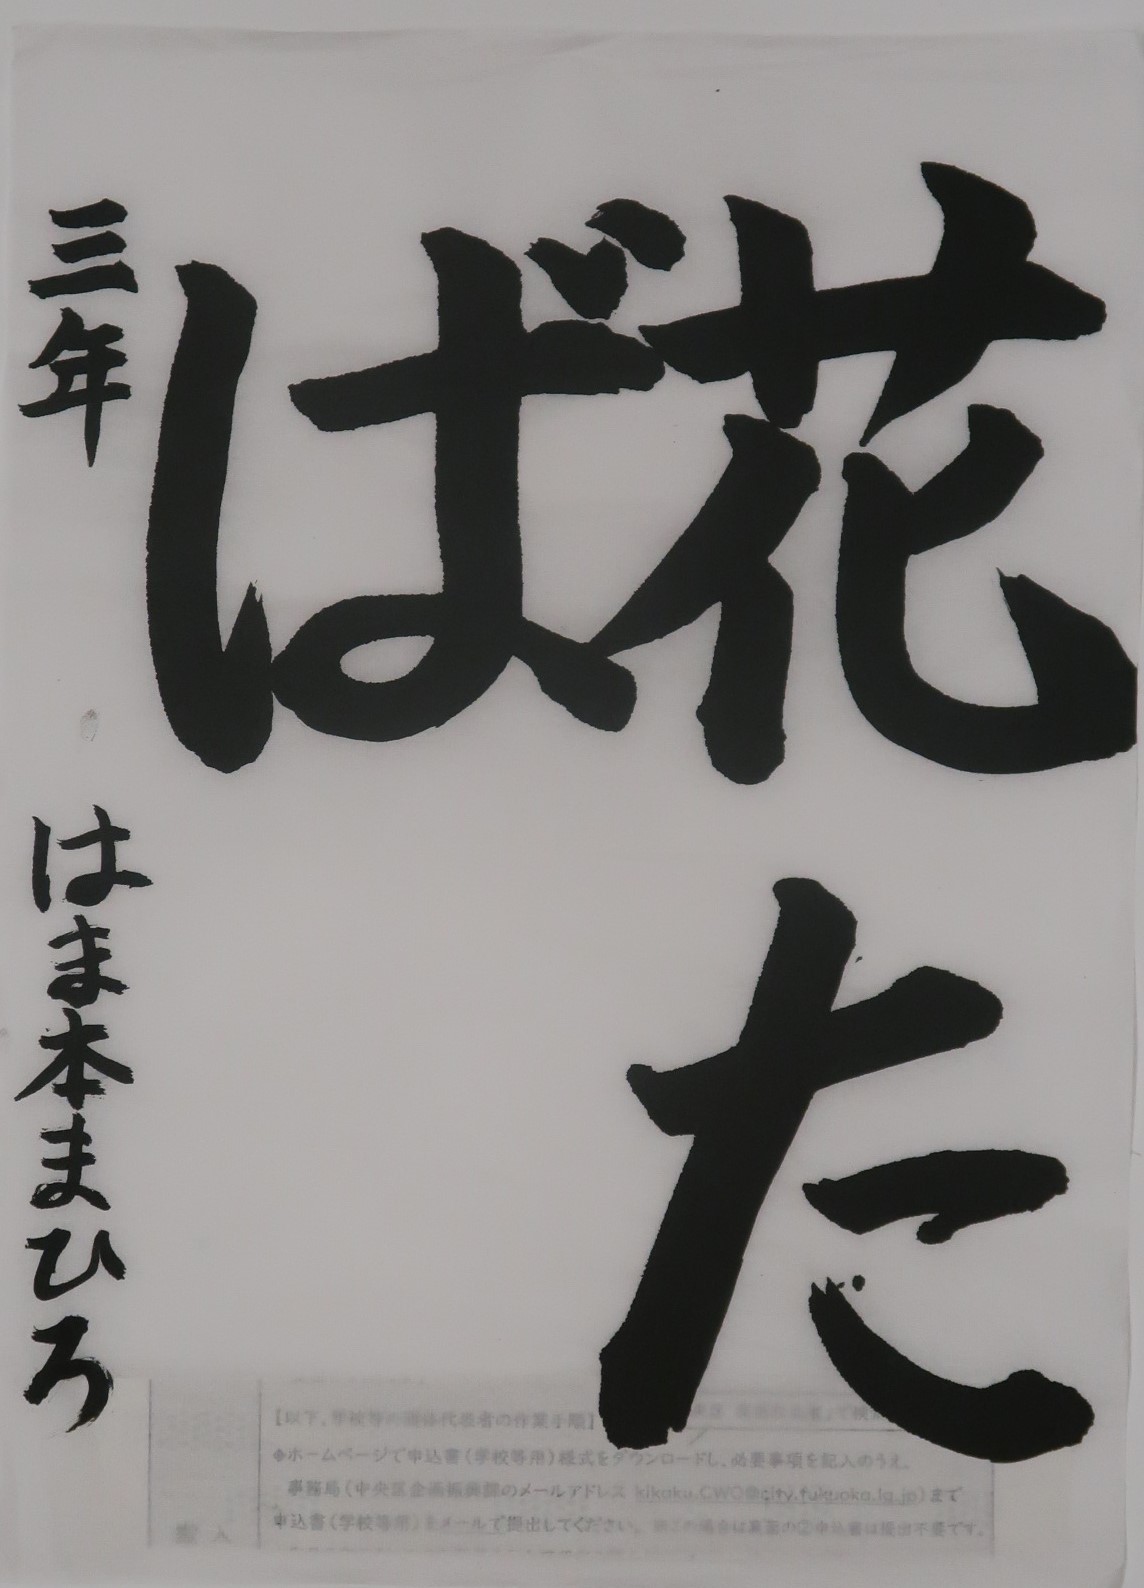 花た
ば
三年 はま本まひろ
【以下、学校等の団体代表者の作業手順】
◆ホームページで申込書(学校等用)様式をダウンロードし、必要事項を記入のうえ、
事務局(中央区企画振興課のメールアドレス kikaku.CWO@city.fukuoka.lg.jp)まで
申込書(学校等用)をメールで提出してください。